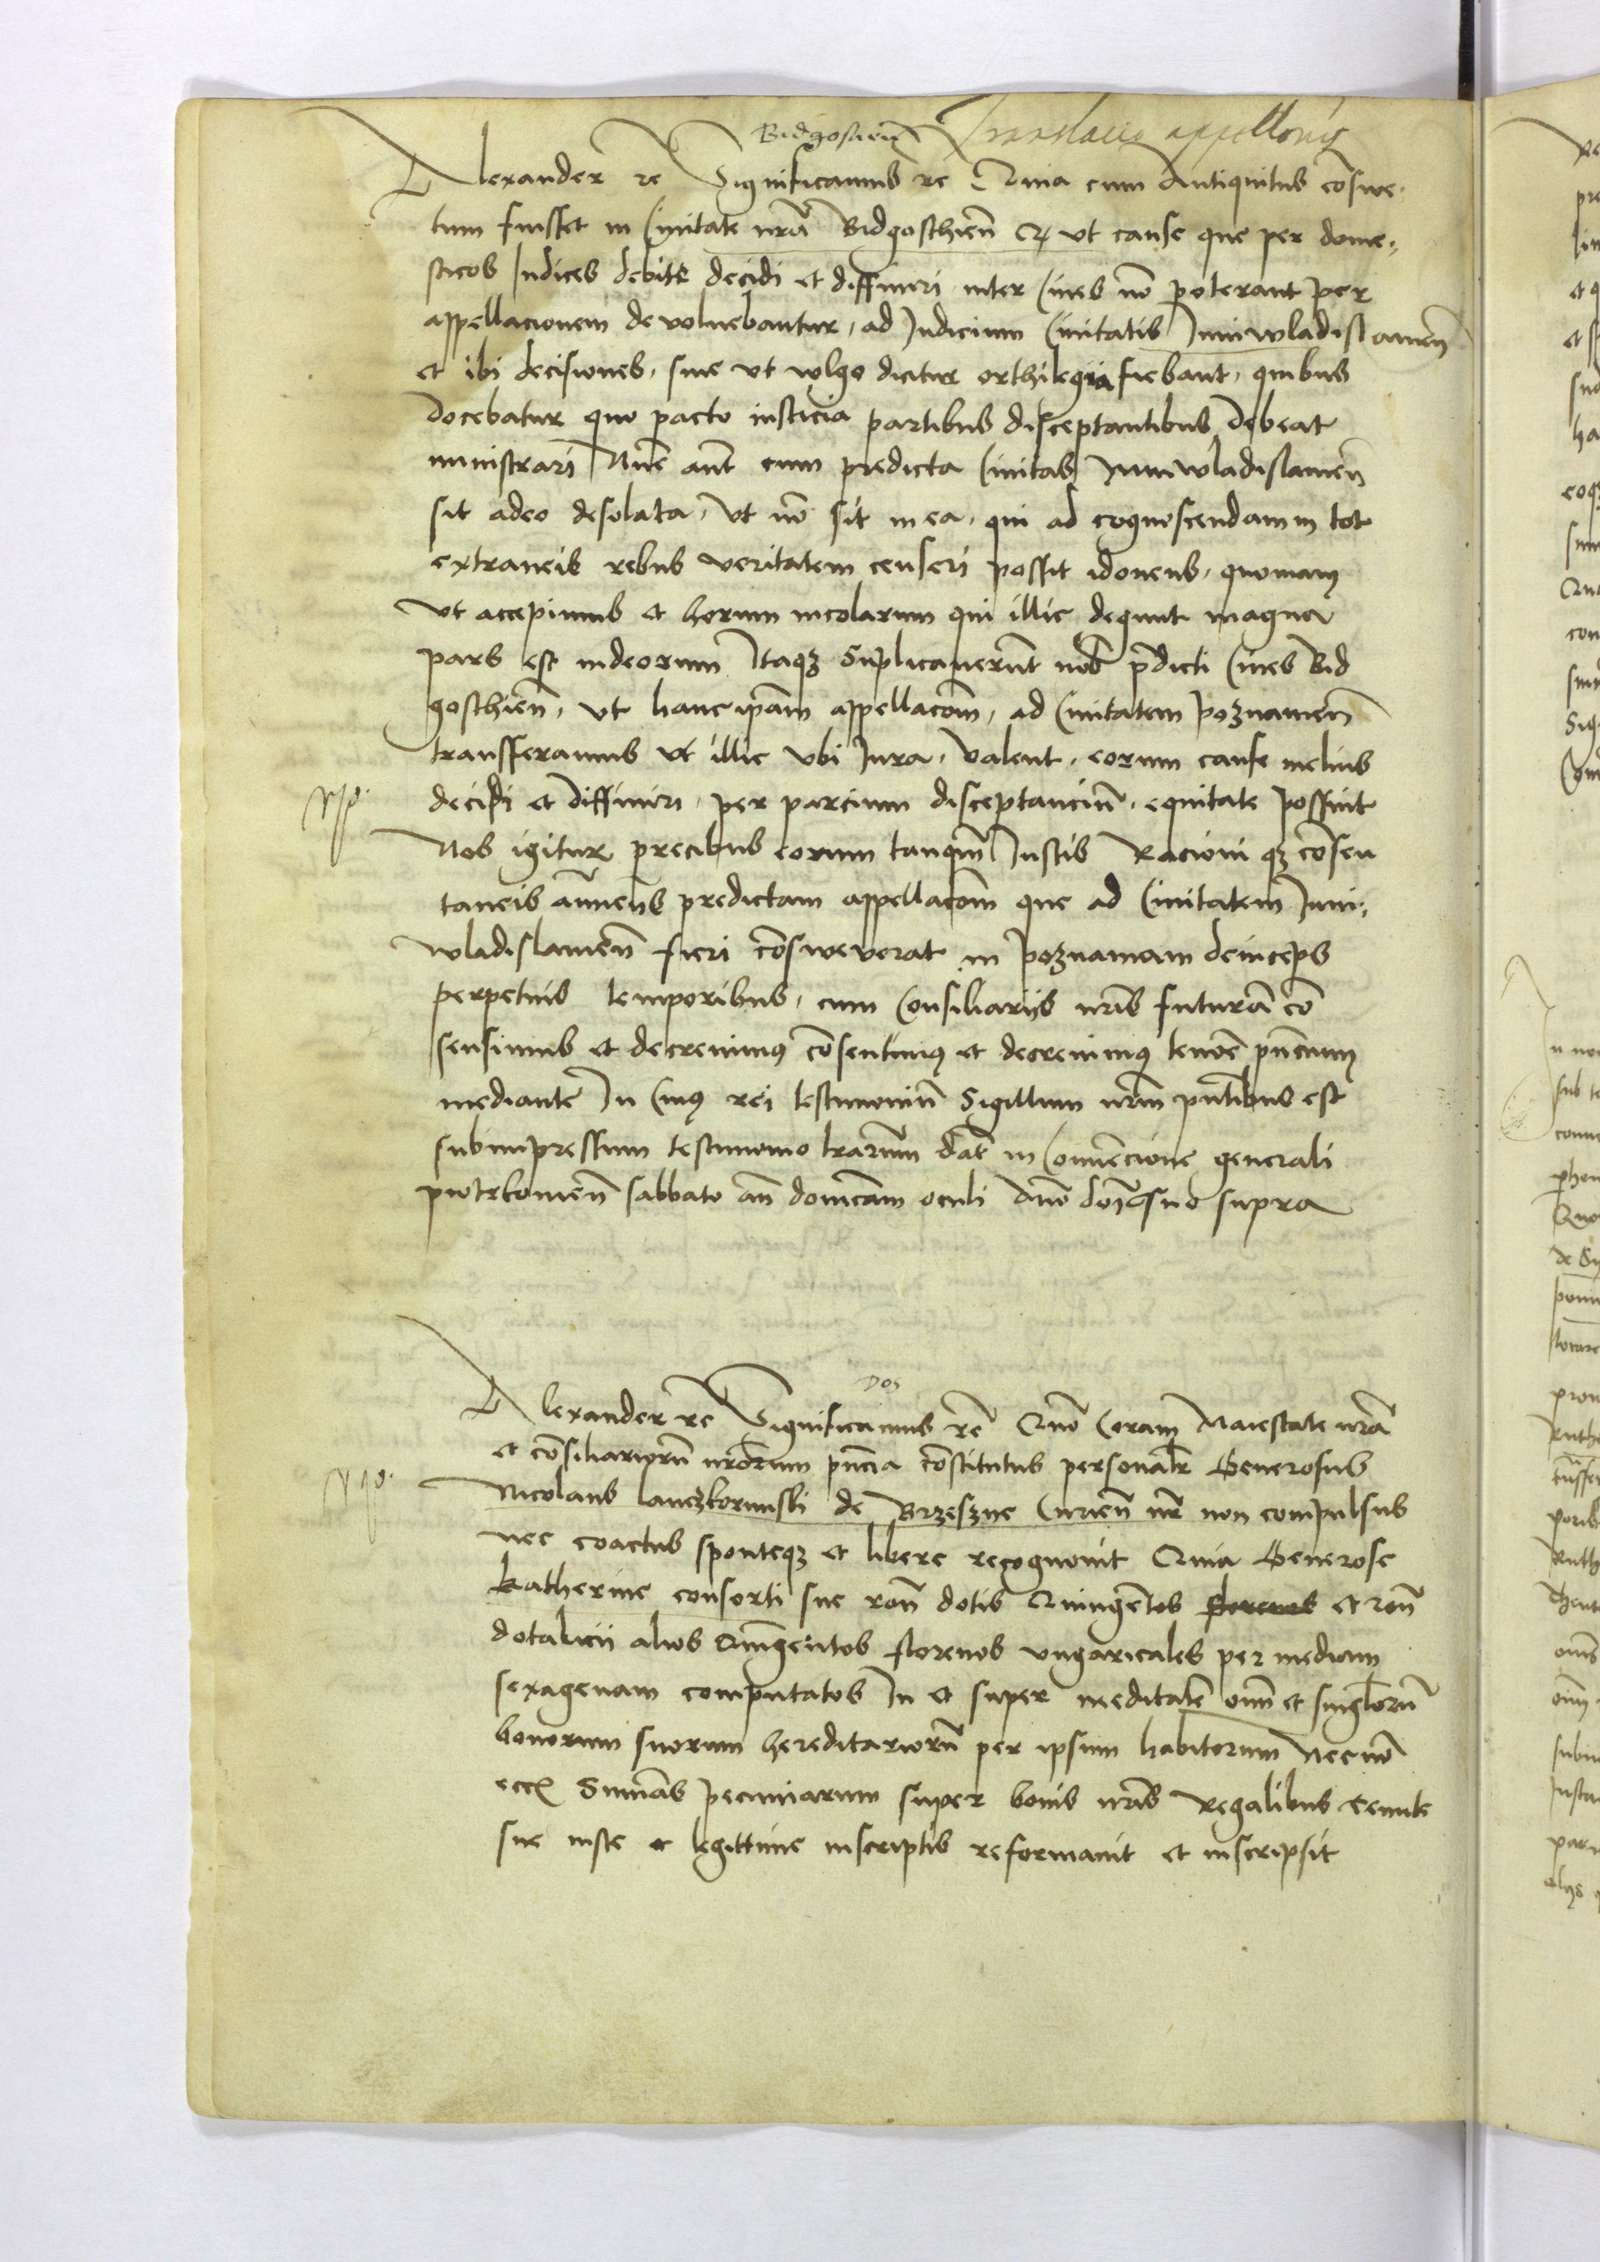 Bidgostien Translacio appellonis
Alexander re Significamus re Quia cum Antiquitus cōswe-
tum fuisset in Civitate nrā Bidgosthieñ ut cause que per dome-
sticos Iudices debite decidi et diffiniri inter Cives nō poterant per
appellacionem devoluebantur, ad Iudicium Civitatis Iuniwladislavien̄
et ibi decisiones, sive ut wlgo dicitur orthilegia fiebant, quibus
docebatur quo pacto insticia partibus disceptantibus debeat
ministrari Nūc aut̄ cum predicta Civitas Iuniwladislavien̄
sit adeo desolata, Ut nō sit in ea, qui ad cognoscendam in tot
extraneis rebus veritatem censeri possit idoneus, quoniam
Ut accepimus et horum incolarum qui illic degunt magna
pars est iudeorum Itaqꝫ Suplicaverunt nob̄ p̄dicti Cives Bid
gosthien̄, ut hanc ip̄am appellacōm, ad Civitatem Poznanien̄
transfferamus Ut illic ubi Iura, valent, eorum cause melius
decidi et diffiniri, per parcium disceptanciū, equitate possint
Nos igitur precibus eorum tanqm̄ Iustis Racioni qꝫ cōsen
taneis an̄uens predictam appellacōm que ad Civitatem Iuni-
wladislavien̄ fieri cōsweverat in Poznaniam deinceps
perpetuis temporibus, cum Consiliariis nrīs futurā cō
sensimus et decrevimus cōsentimus et decrevimus tenōre pn̄cium
mediante In Cuius rei testimoniū Sigillum nrm̄ pn̄tibus est
subimpressum testimonio lrārum dat̄ in Convēcione generali
piotrkovien̄ sabbato an̄ domīcam oculi Anō dom̄i quo supra
Dos
Alexander re Significamus re Quō Coram Maiestate nrā
et cōsiliariorū nrōrum pn̄cia cōstitutus personalr̄ Generosus
Nicolaus lanczkorunski de Brzeszye Curien̄ nr̄ non compulsus
nec coactus sponteqꝫ et libere recognovit Quia Generose
Katherine consorti sue ron̄ dotis Quingētos florenos et ron̄
dotalicii alios Quīgentos florenos ungaricales per mediam
sexagenam computatos In et super medietate om̄i et singlorū
bonorum suorum hereditariorū per ipsum habitorum Necnō
Sum̄as pecuniarum super bonis nrīs regalibus tenute
sue iuste et legittime inscriptis reformavit et inscripsit